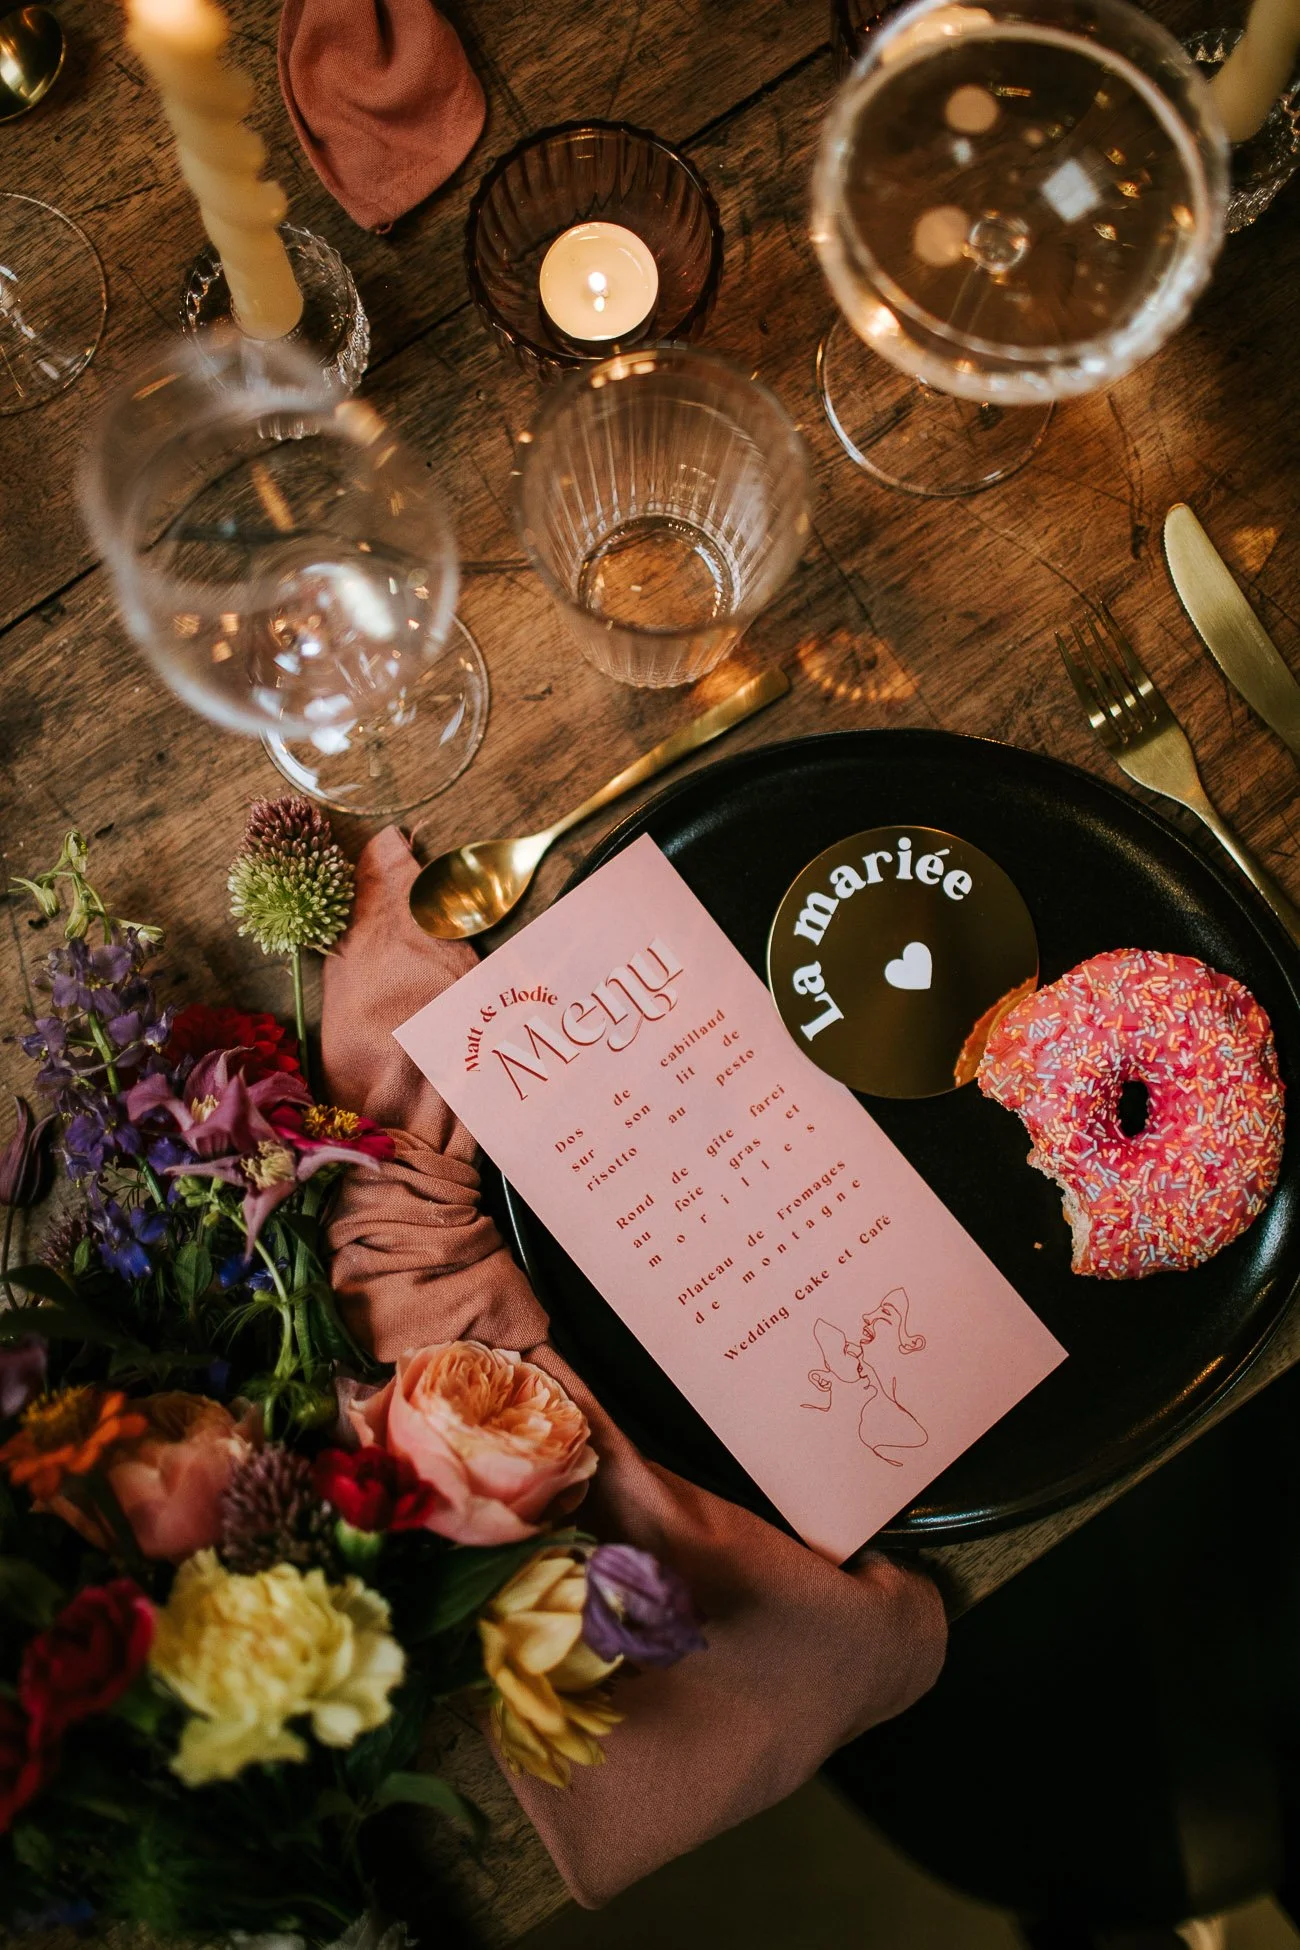 Matt & Elodie
Menu
Dos de cabillaud
sur son lit de
risotto au pesto
Rond de gîte farei
au foie gras et
morilles
Plateau de Fromages
de montagne
Wedding Cake et Café
La mariée